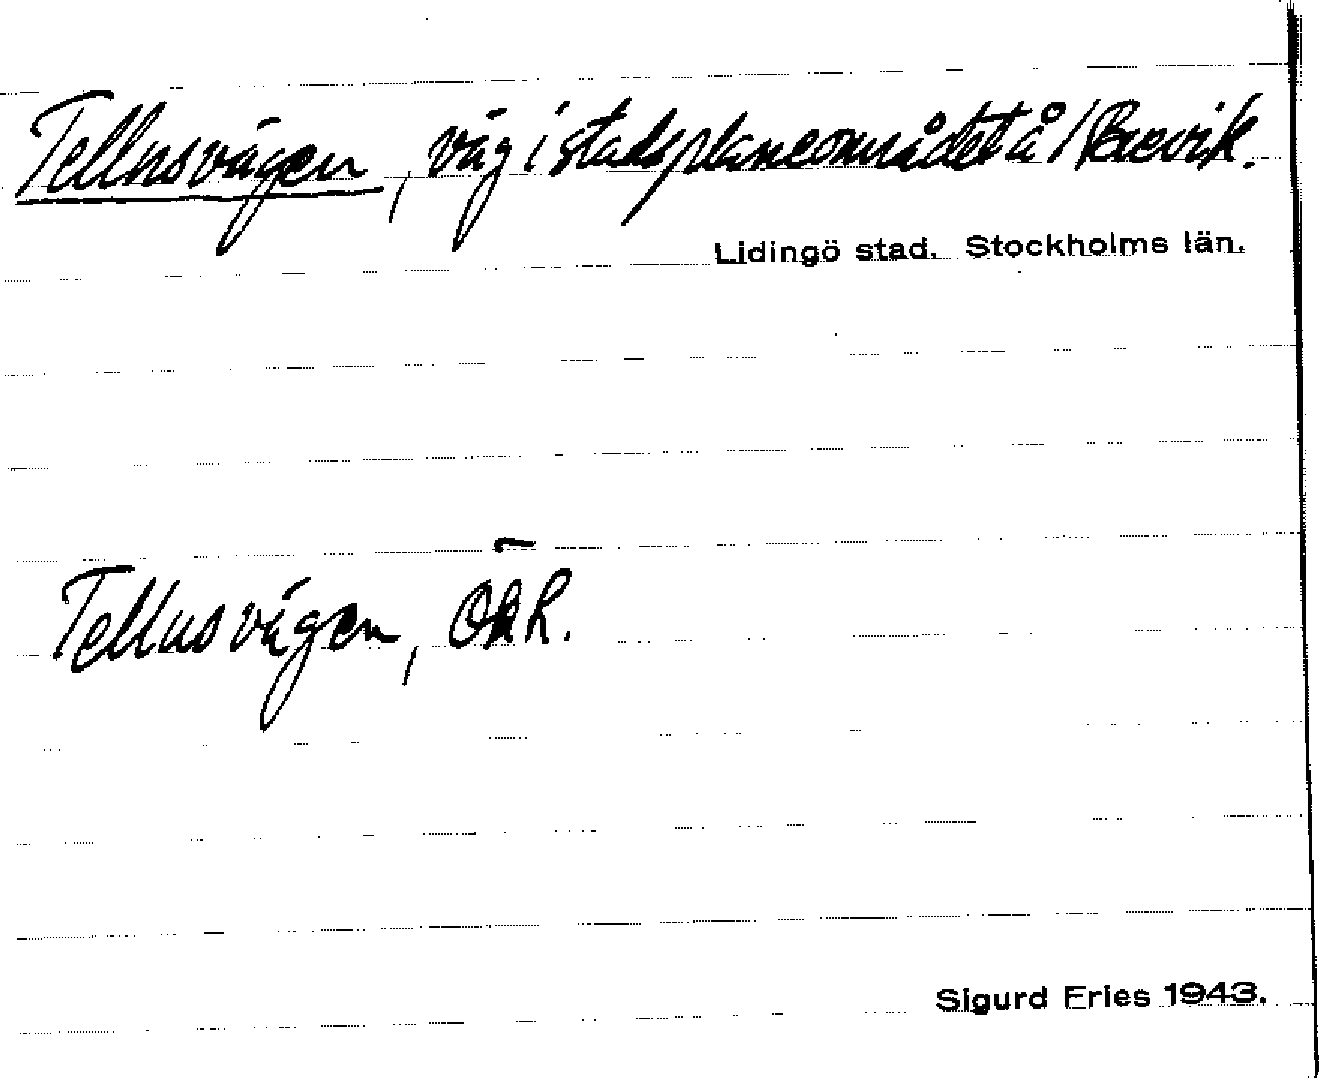 Tellusvägen, väg i stadsplaneområdet å Brevik.
Lidingö stad. Stockholms län.
Tellusvägen, ÖKR.
Sigurd Fries 1943.